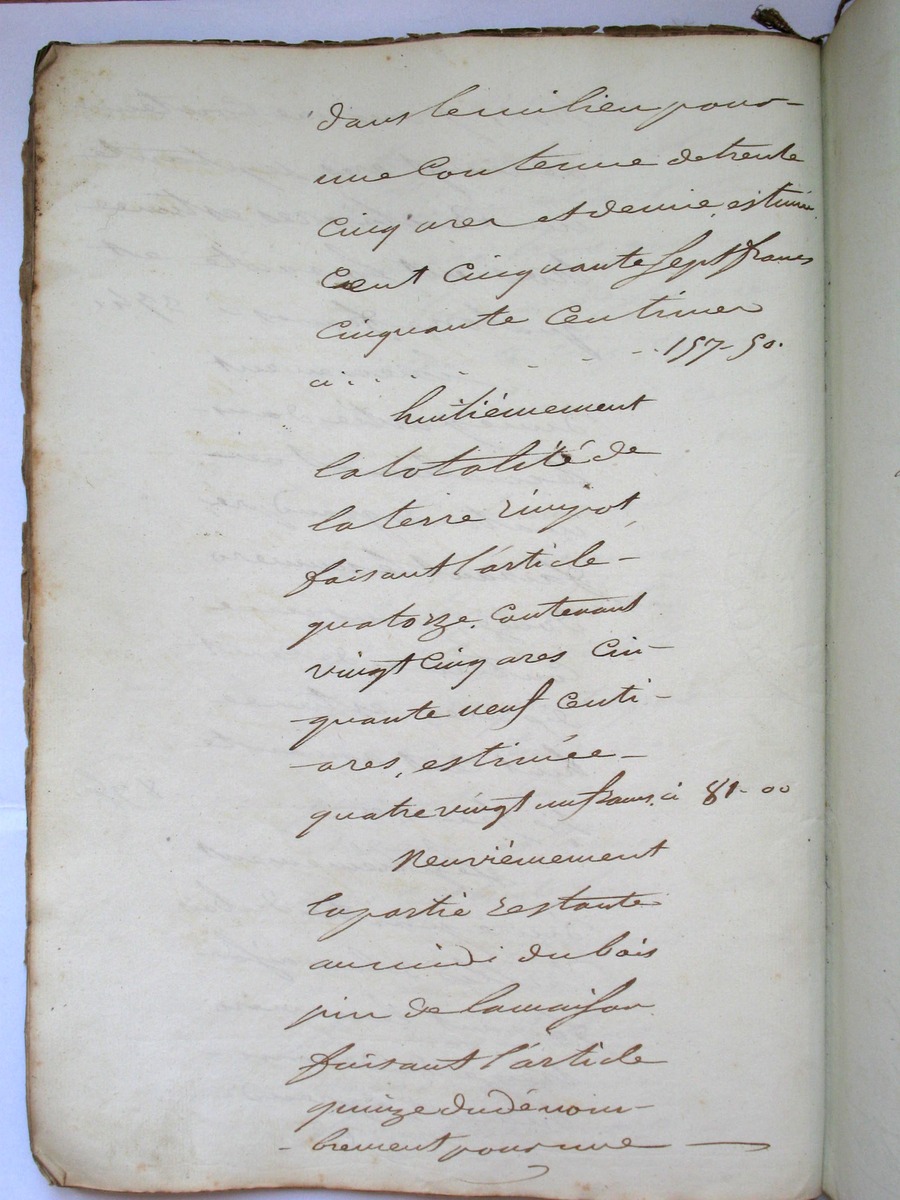 dans le milieu pour-
une Contenue de trente
Cinq ares et demie, estimée
Cent Cinquante Sept francs
Cinquante Centimes
ci . . . . . . . . 157-50.
huitiémement
la totalité de
la terre
faisant l'article-
quatorze. Contenant
vingt Cinq ares Cin-
-quante neuf Centi-
-ares, estimée-
quatre vingt un francs. ci 81-00
Neuviémement
la partie restante
au midi du bois
pin de la maison
faisant l'article
quinze du dénom-
-brement pour une —